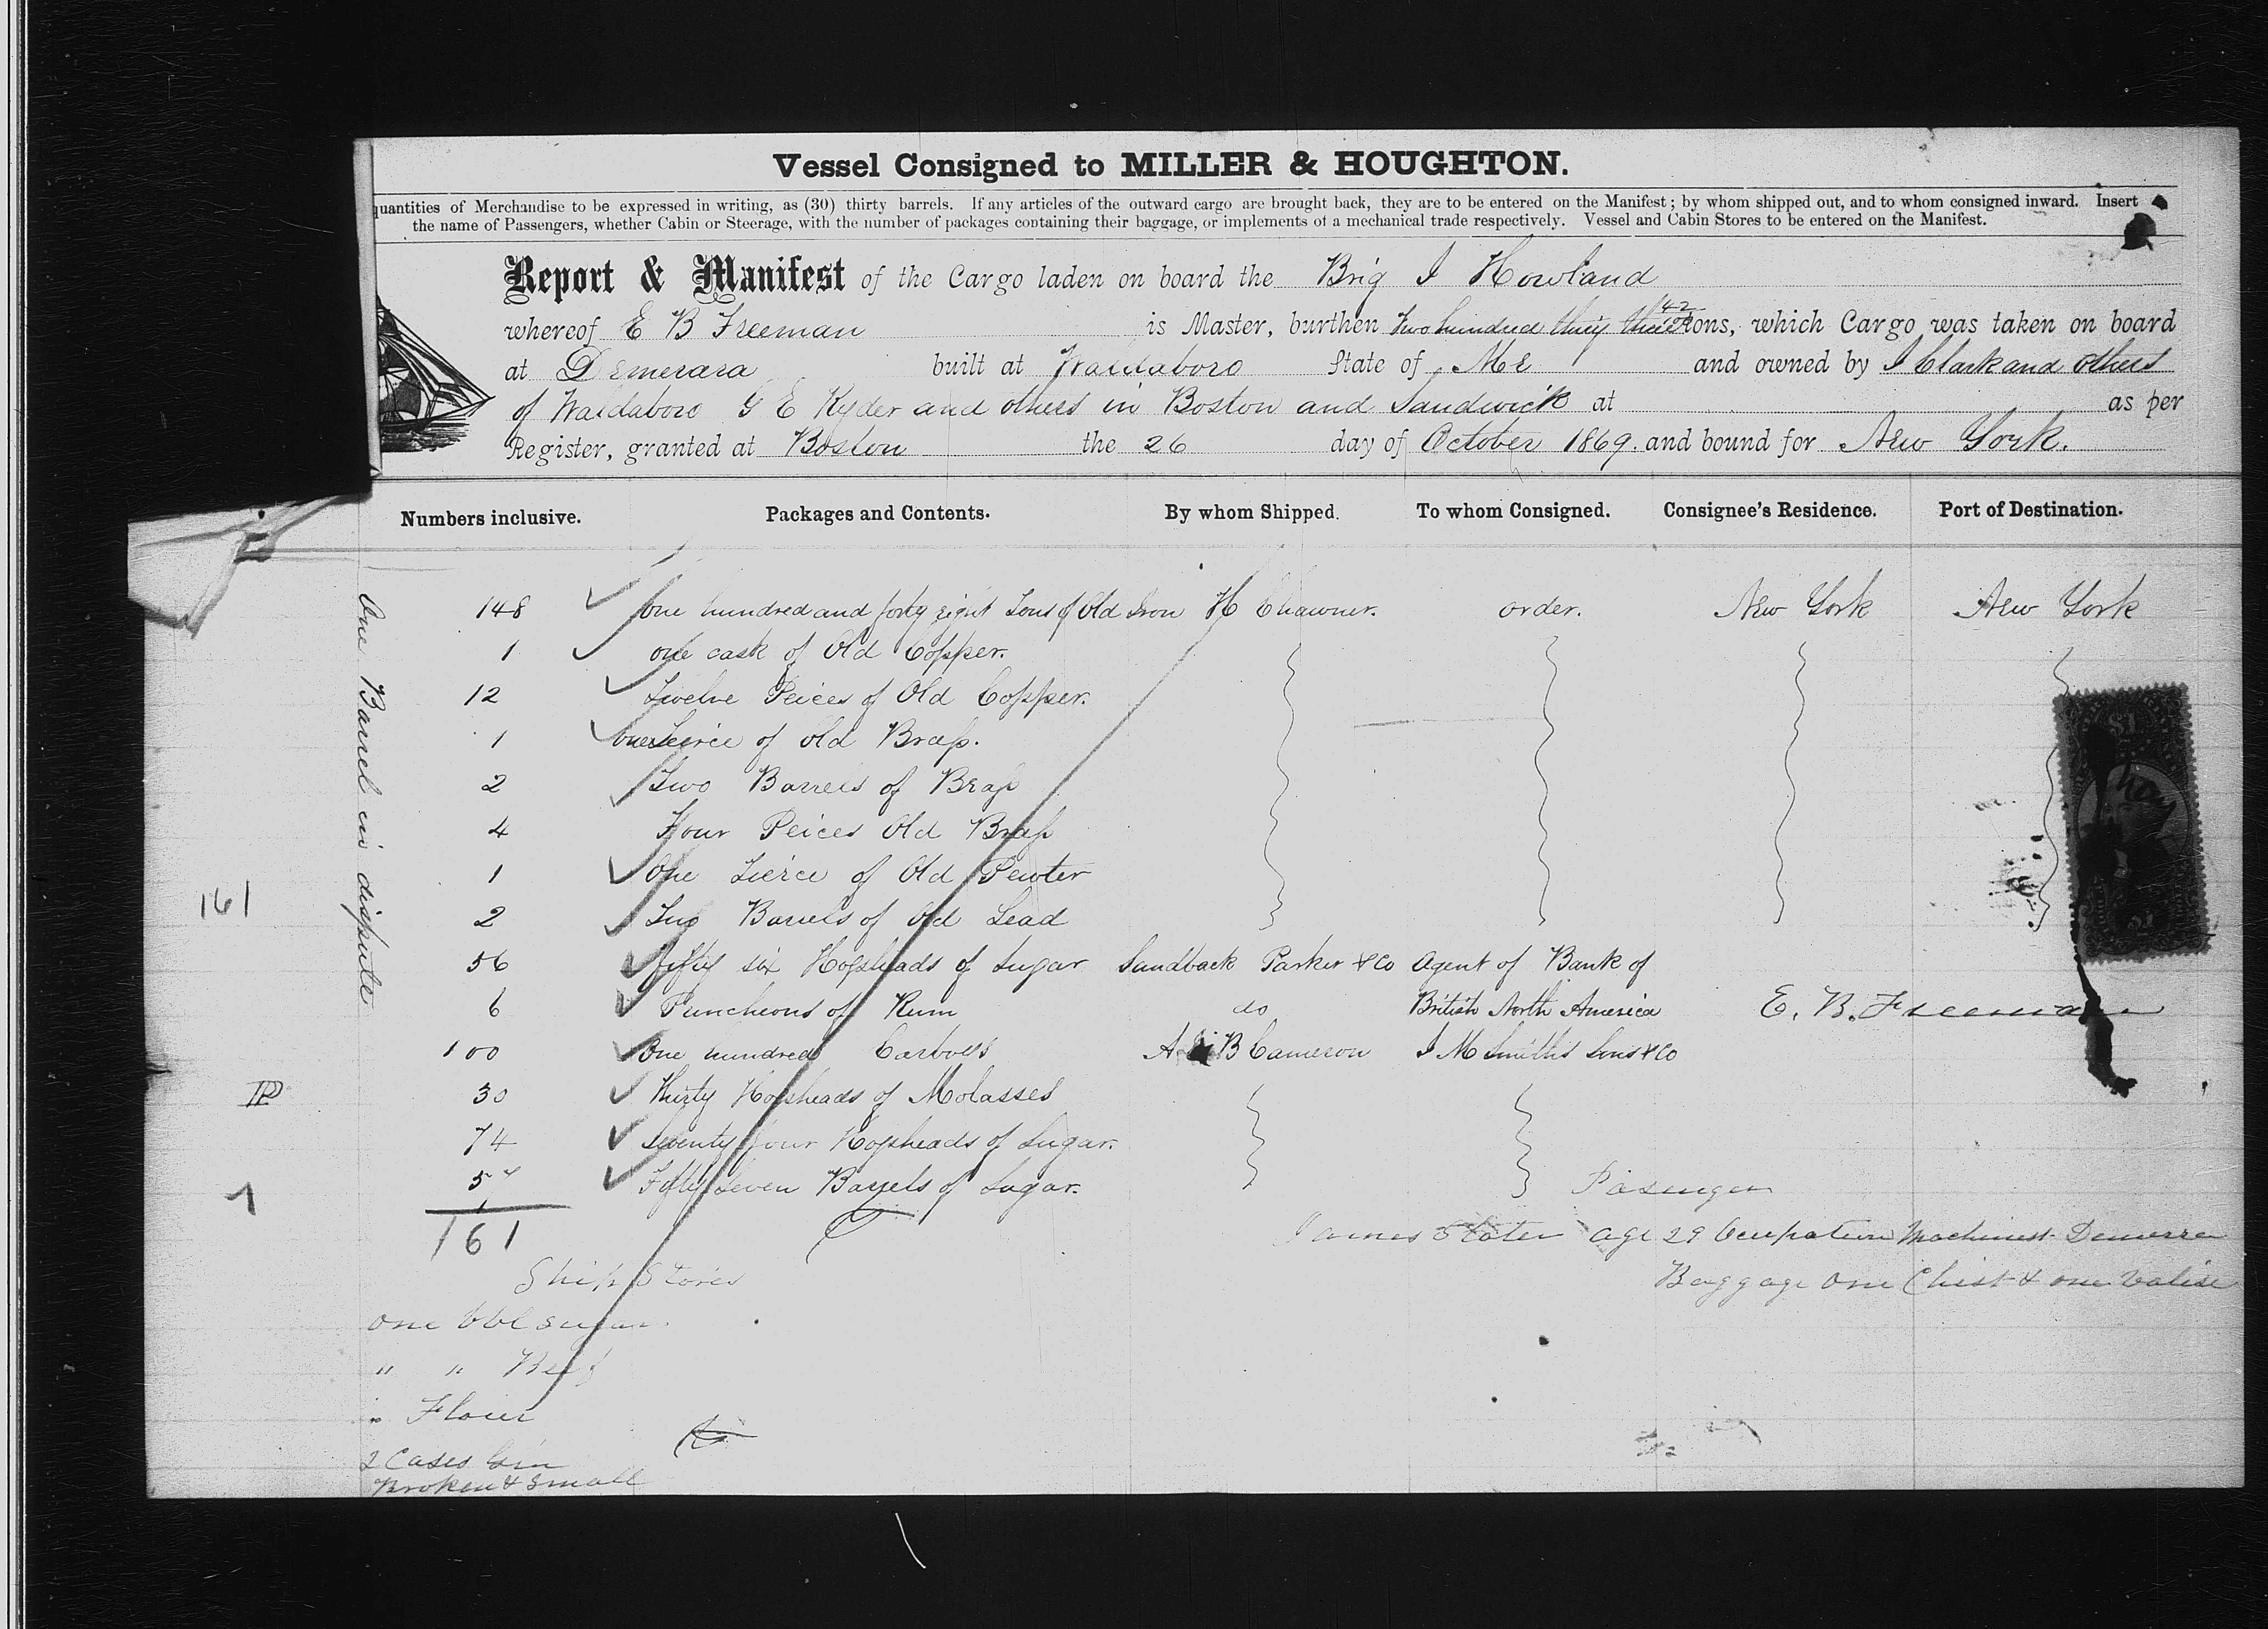 Vessel Consigned to MILLER & HOUGHTON.
quantities of Merchandise to be expressed in writing, as (30) thirty barrels. If any articles of the outward cargo are brought back, they are to be entered on the Manifest; by whom shipped out, and to whom consigned inward. Insert
the name of Passengers, whether Cabin or Steerage, with the number of packages containing their baggage, or implements of a mechanical trade respectively. Vessel and Cabin Stores to be entered on the Manifest.
Report & Manifest of the Cargo laden on board the Brig I Howland
whereof E B Freeman is Master, burthen Two hundred thirty three 42/100 tons, which Cargo was taken on board
at Demerara built at Waldaboro State of Me and owned by I Clark and others
of Waldaboro G E Ryder and others in Boston and Sandwich at as per
Register, granted at Boston the 26 day of October 1869. and bound for New York.
Numbers inclusive. Packages and Contents. By whom Shipped. To whom Consigned. Consignee's Residence. Port of Destination.
148 one hundred and forty eight Tons of Old Iron H Chawner. order. New York New York
1 one cask of Old Copper.
12 Twelve Peices of Old Copper.
1 one Teirce of old Brass.
2 Two Barrels of Brass
4 Four Peices Old Brass
1 One Tierce of Old Pewter
161
2 Two Barrels of Old Lead
One Barrel in dispute
56 fifty six Hogsheads of Sugar Sandback Parker & Co Agent of Bank of
6 Puncheons of Rum do British North America E. B. Freeman
100 One hundred Carboys A B Cameron I M Smith's Sons & Co
30 Thirty Hogsheads of Molasses
74 Seventy four Hogsheads of Sugar.
57 Fifty Seven Barrels of Sugar.
Pasenger
161
James Slater age 29 Ocupation Machinest Demerra
Baggage One Chist & one Valise
Ship Stores
one bbl sugar.
" " Beef
" Flour
2 Cases Gin
Broken & Small